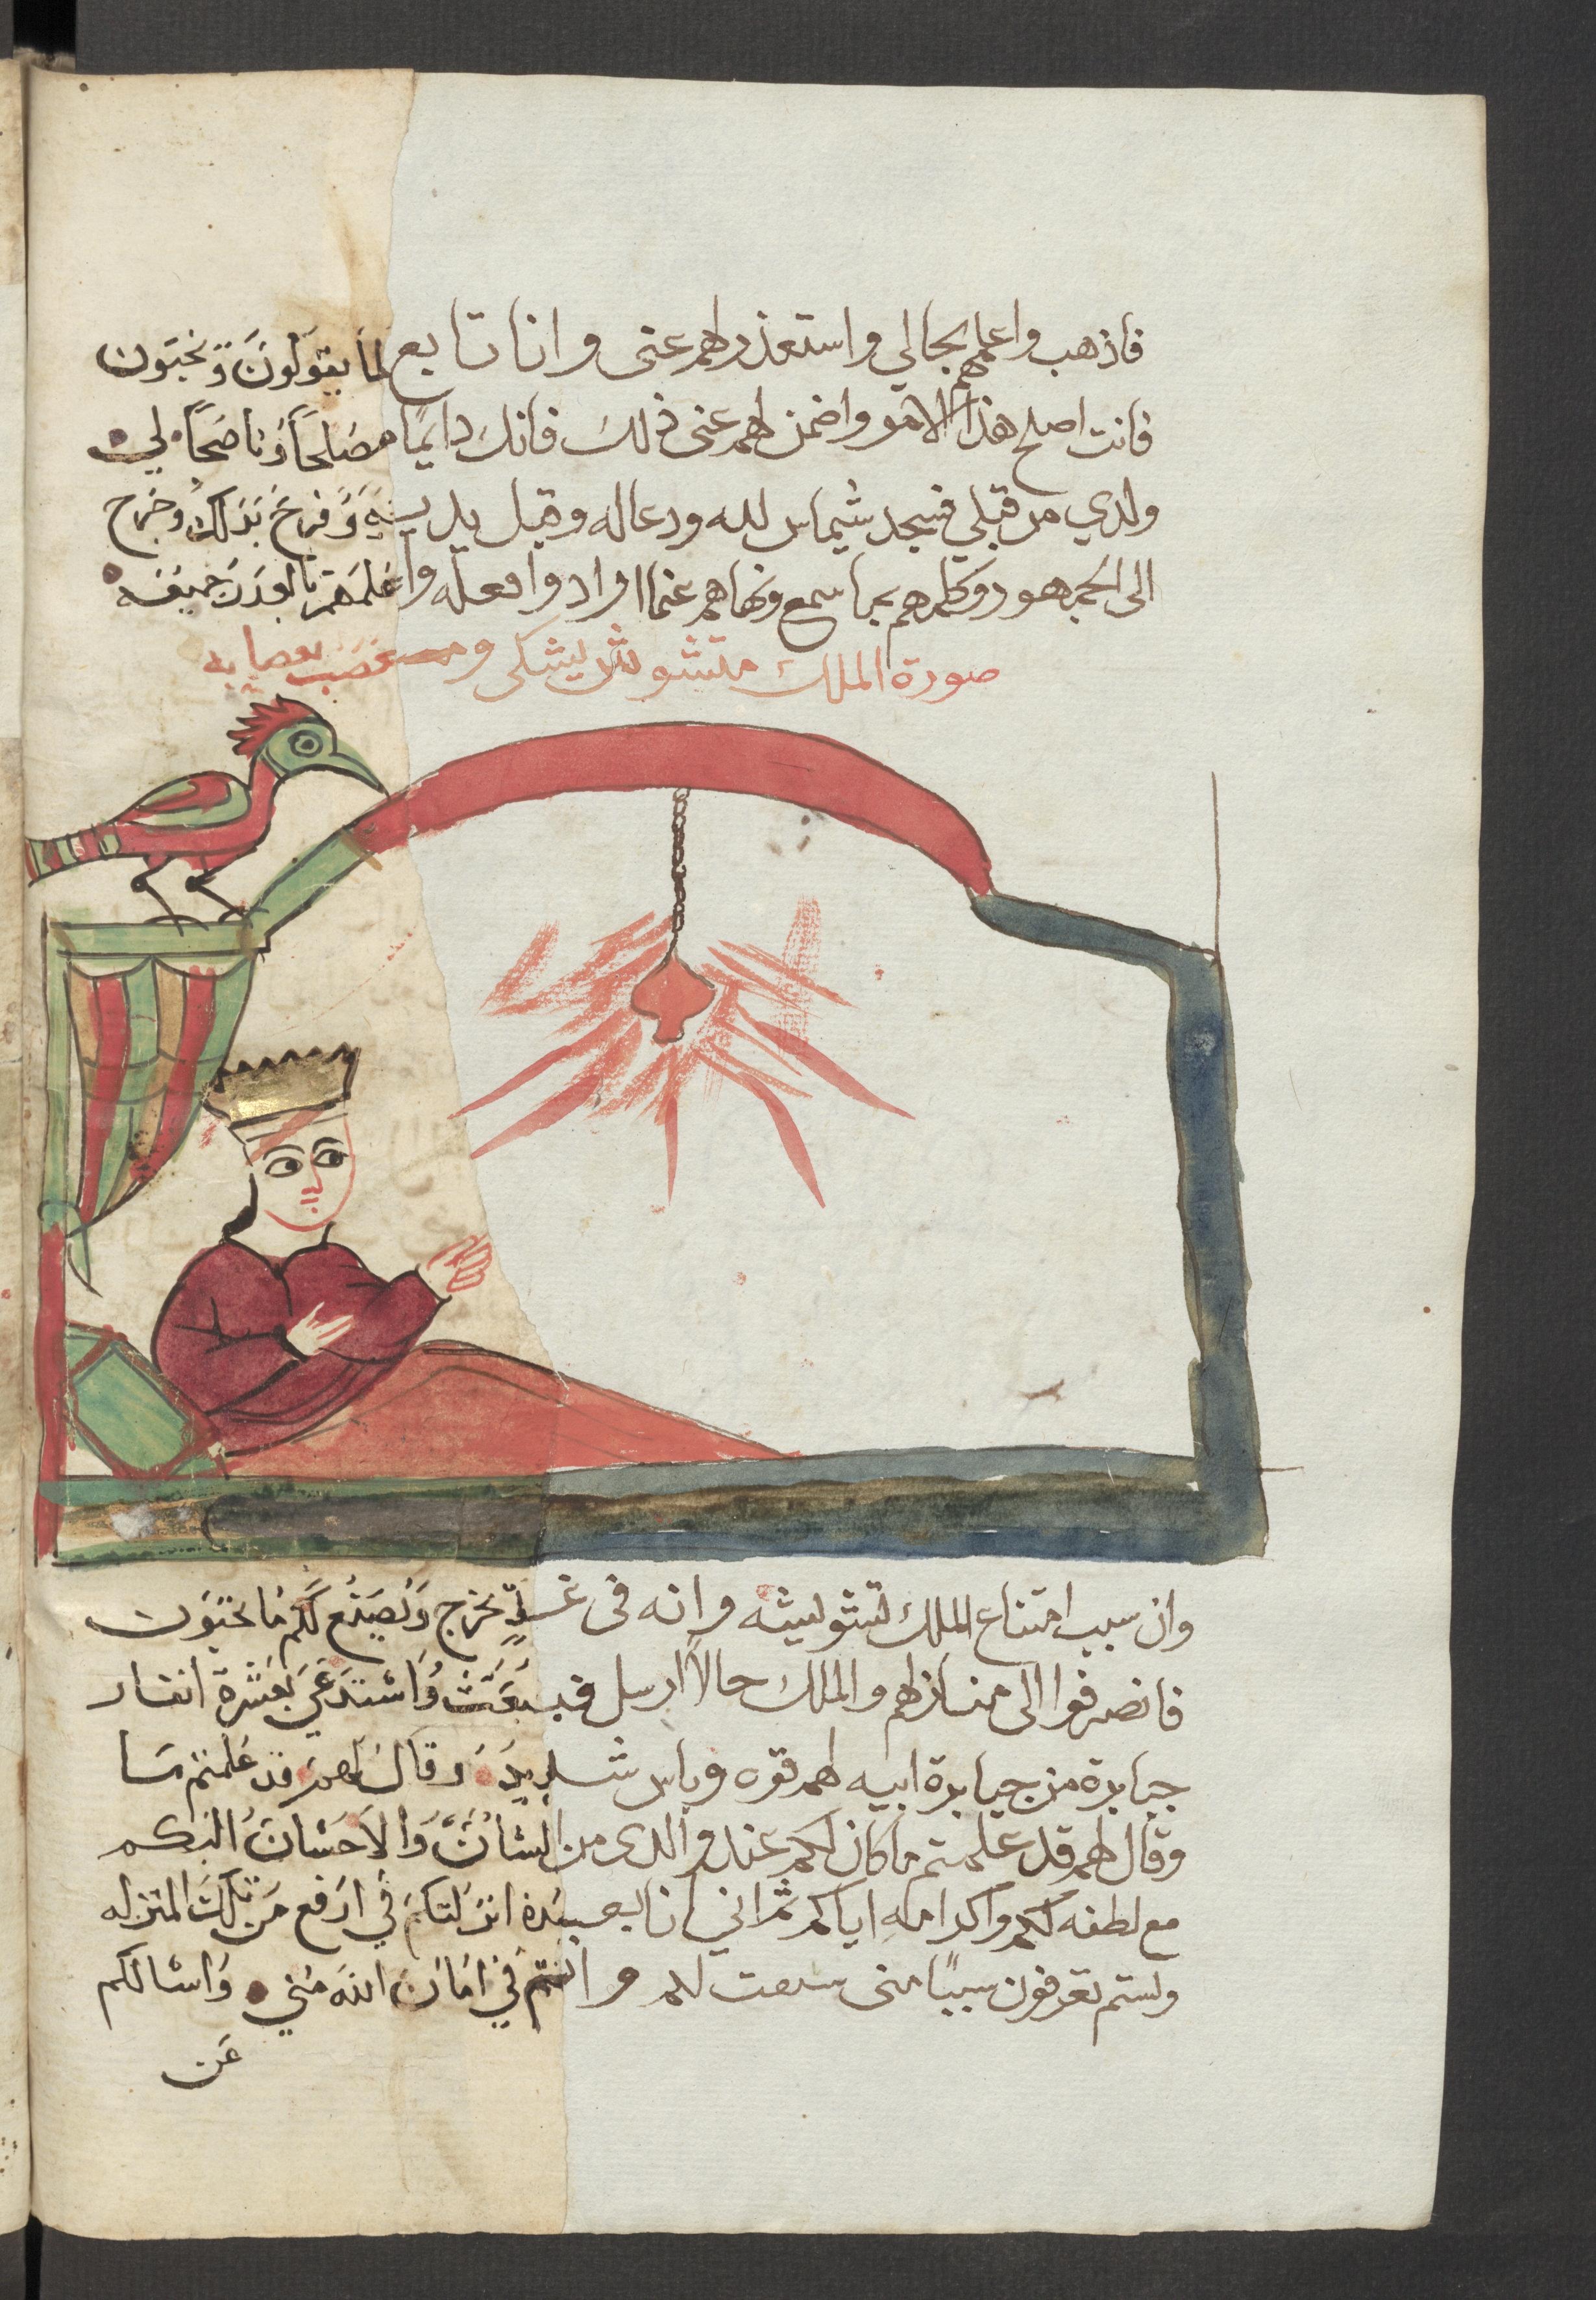 فاذهب واعلمهم بحالي واستعذر لهم عني وانا تابع لما يقولون ويحبون
فانت اصلح هذا الامر واضمن لهم عني ذلك فانك دايما مصلحا وناصحا لي
ولدي من قبلي فسجد شيماس لله ودعا له وقبل يديه وفرح بذلك وخرج
الى الجمهور وكلمهم بما سمع ونهاهم عنما ارادوا فعله واعلمهم بالعذر جميعه
صورة الملك متشوش ليشكي ومعصب بعصابه
وان سبب امتناع الملك لتشويشه وانه في غد يخرج ويصنع لكم ما تحبون
فانصرفوا الى منازلهم والملك حالا ارسل فبعث واستدعي بعشرة انفار
جبابرة من جبابرة ابيه لهم قوه وباس شديد وقال لهم قد علمتم ما
وقال لهم قد علمتم ما كان لكم عند والدي من الشان والاحسان اليكم
مع لطفه لكم واكرامه اياكم ثم اني انا بعده انزلتكم في ارفع من تلك المنزله
ولستم تعرفون سببا مني سبقت لكم وانتم في امان الله مني واسالكم
عن